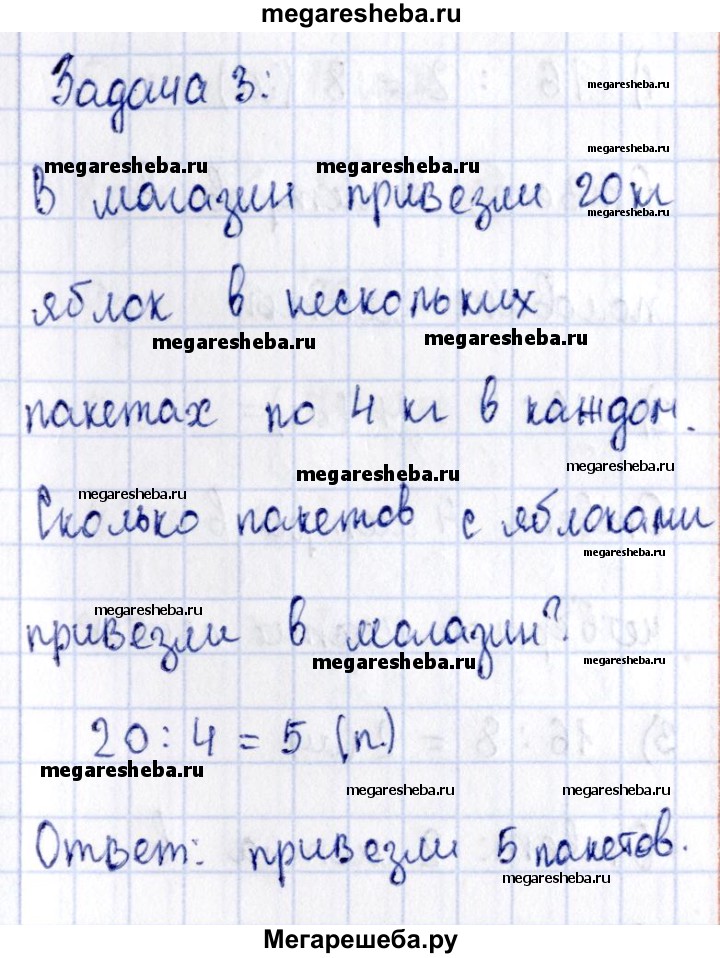 megaresheba.ru
Задача 3:
megaresheba.ru
megaresheba.ru
megaresheba.ru megaresheba.ru
В магазин привезли 20 кг
megaresheba.ru
яблок в нескольких
megaresheba.ru megaresheba.ru
пакетах по 4 кг в каждом.
megaresheba.ru megaresheba.ru
megaresheba.ru
Сколько пакетов с яблоками
megaresheba.ru
megaresheba.ru
привезли в магазин?
megaresheba.ru megaresheba.ru
20 : 4 = 5 (п.)
megaresheba.ru
megaresheba.ru megaresheba.ru
Ответ: привезли 5 пакетов.
megaresheba.ru
Мегарешеба.ру